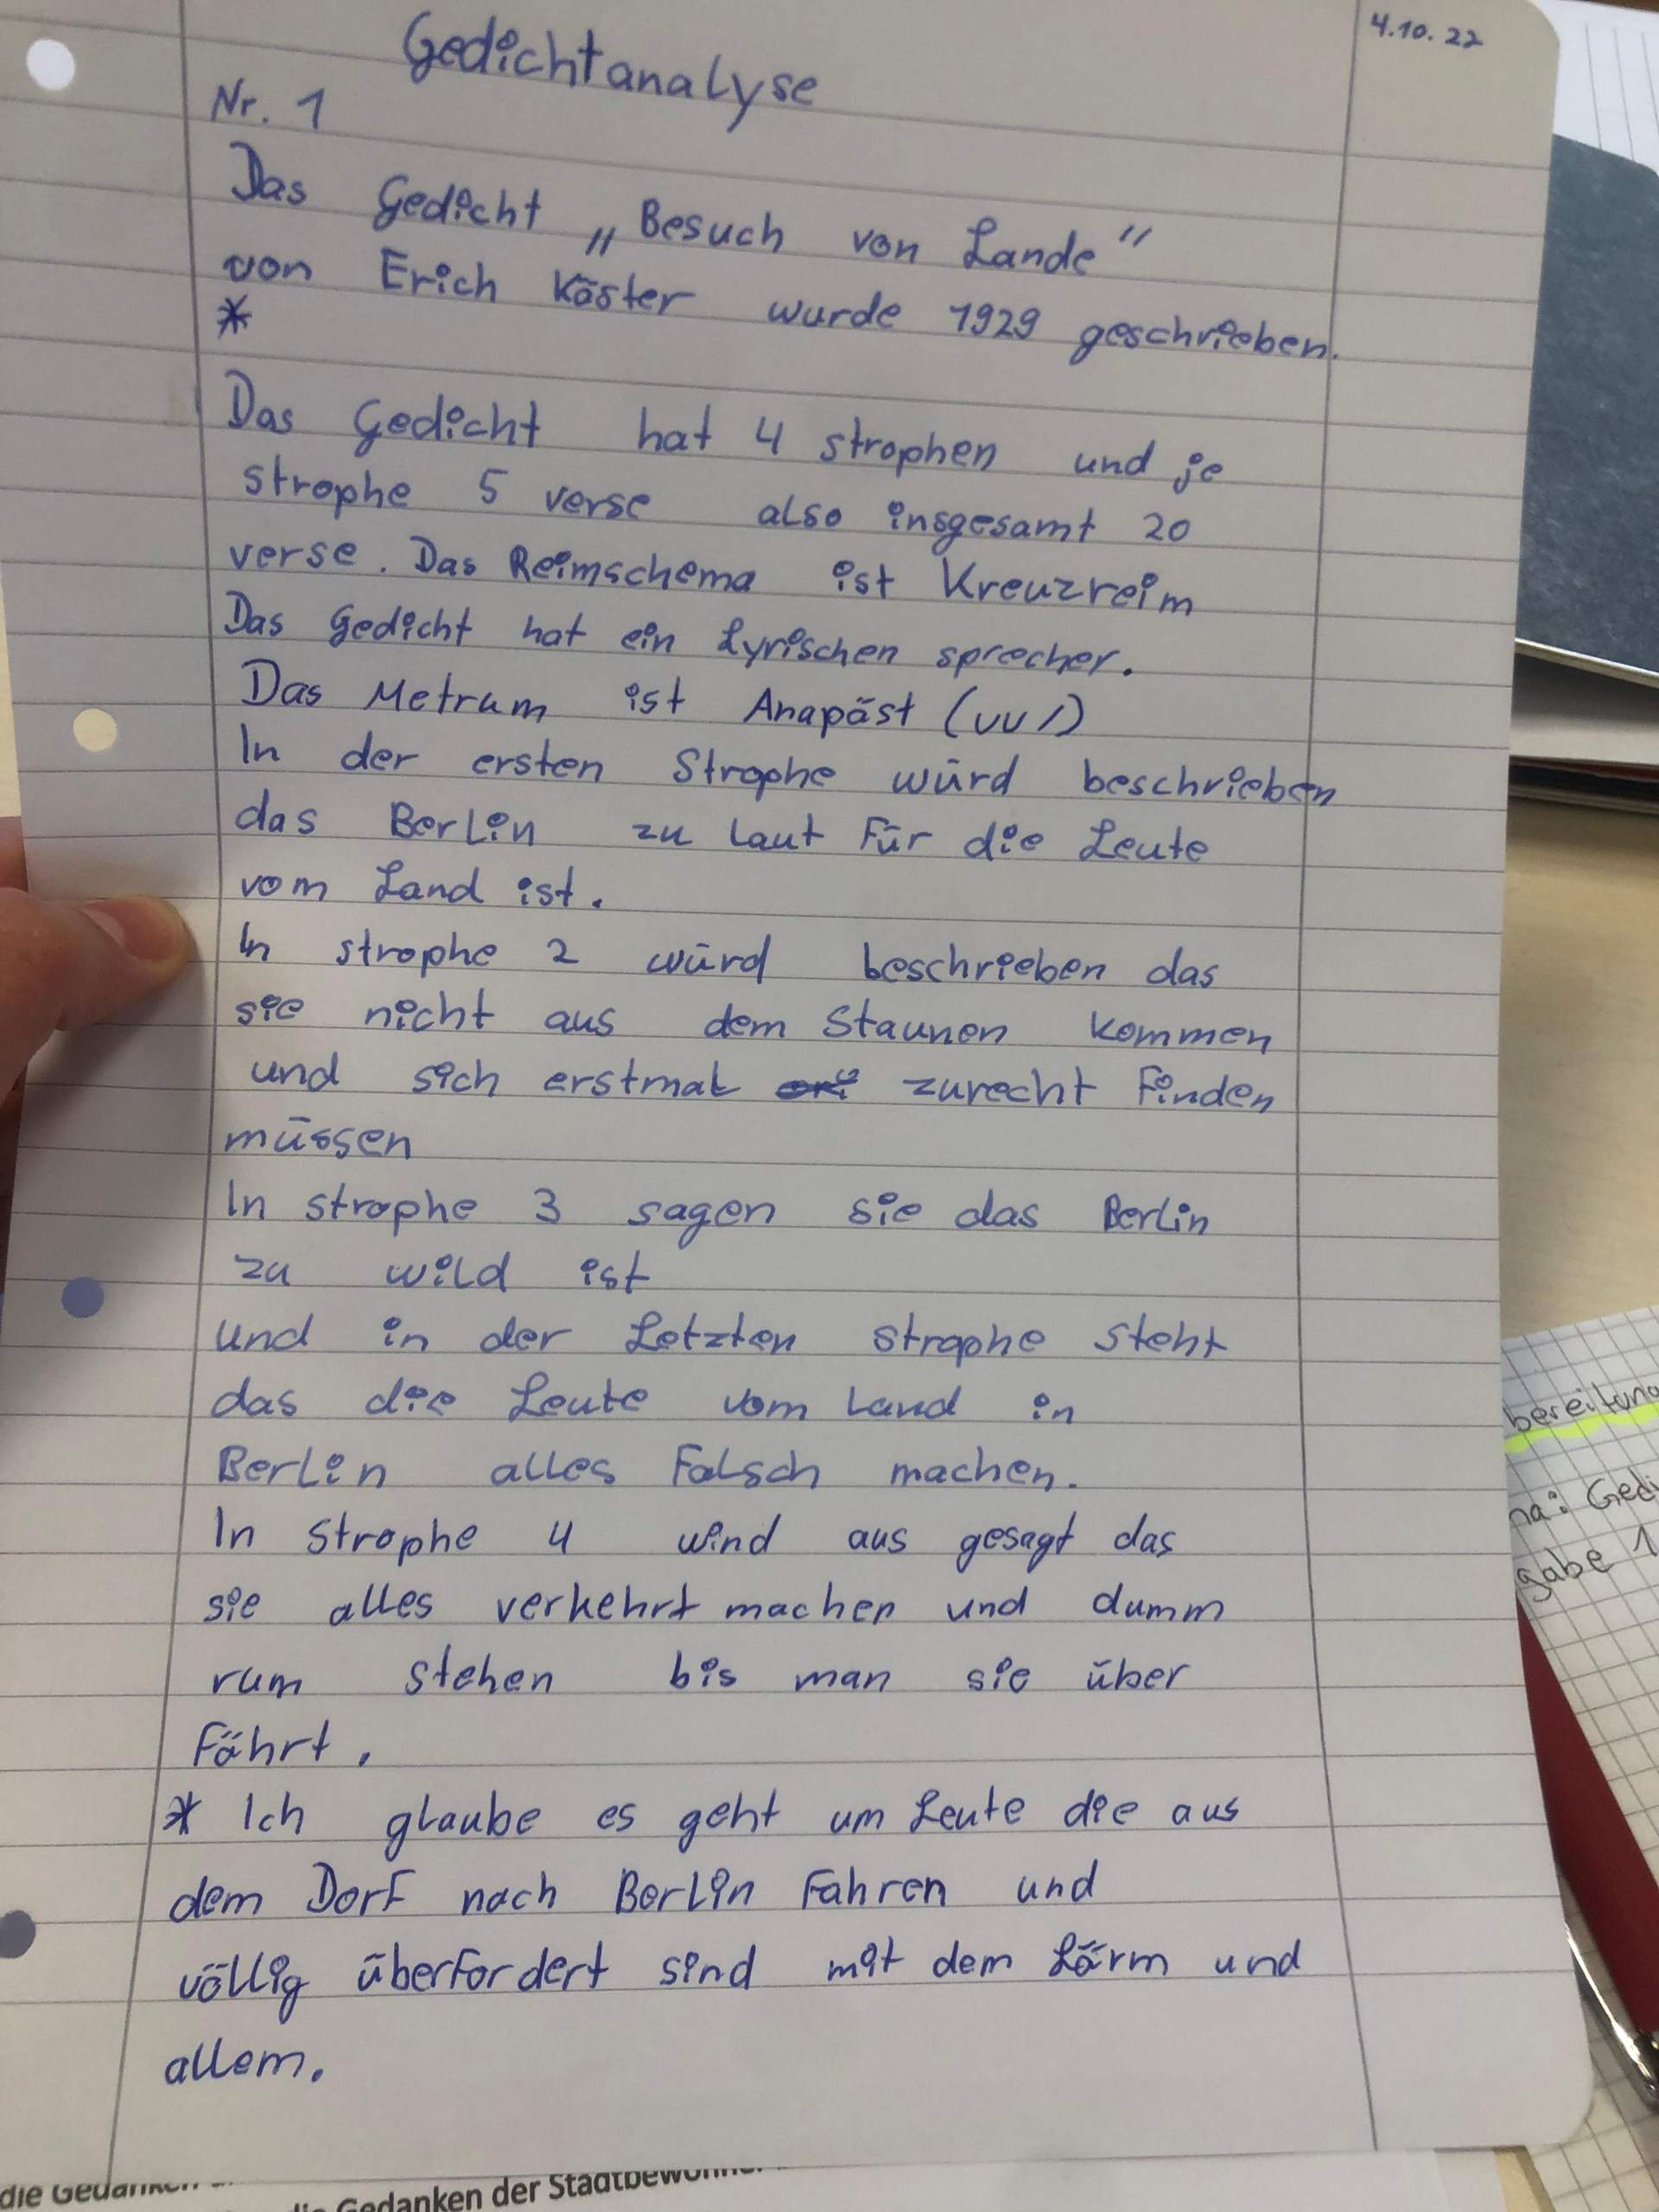 4.10.22
Gedichtanalyse
Nr. 1
Das Gedicht „Besuch von Lande"
von Erich Käster wurde 1929 geschrieben.
*
Das Gedicht hat 4 strophen und je
strophe 5 verse also insgesamt 20
verse. Das Reimschema ist Kreuzreim
Das Gedicht hat ein Lyrischen sprecher.
Das Metrum ist Anapäst (υυ/)
In der ersten Strophe würd beschrieben
das Berlin zu laut Für die Leute
vom Land ist.
In strophe 2 würd beschrieben das
sie nicht aus dem Staunen kommen
und sich erstmal zurecht Finden
müssen
In strophe 3 sagen sie das Berlin
zu wild ist
und in der Letzten strophe steht
das die Leute vom Land in
Berlin alles Falsch machen.
In Strophe 4 wind aus gesagt das
sie alles verkehrt machen und dumm
rum stehen bis man sie über
Fährt.
* Ich glaube es geht um Leute die aus
dem Dorf nach Berlin Fahren und
völlig überfordert sind mit dem Lärm und
allem.
bereitung
na: Gedi
gabe 1
die Gedanken
Gedanken der Stadtbewohner